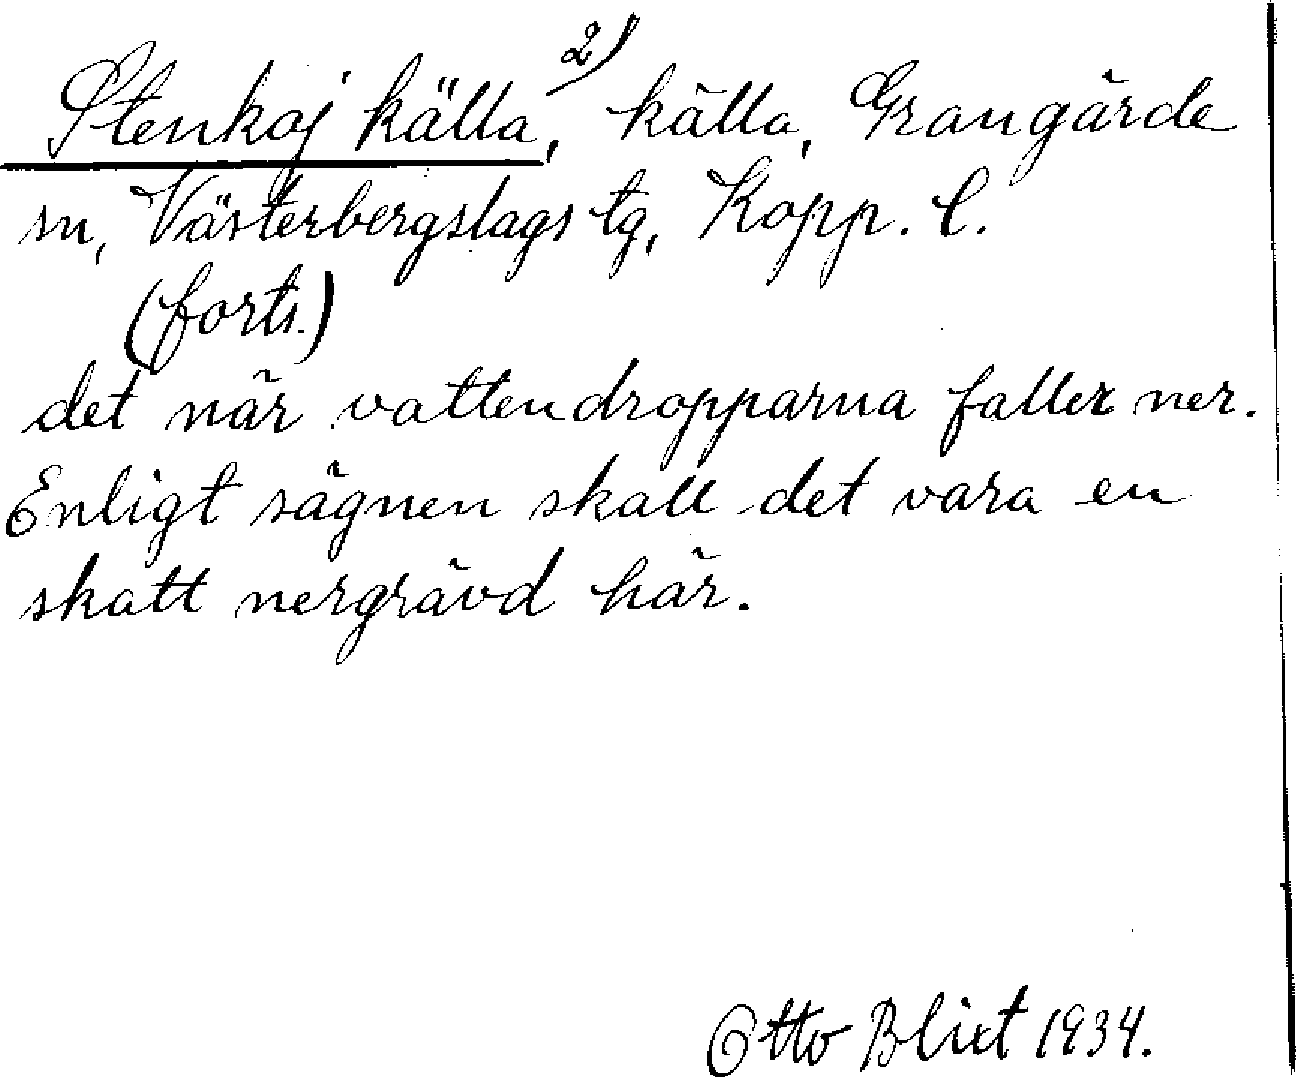 Stenkoj källa, 2) källa, Grangärde
sn, Västerbergslags tg, Kopp. l.
(forts.)
det när vattendropparna faller ner.
Enligt sägnen skall det vara en
skatt nergrävd här.
Otto Blixt 1934.